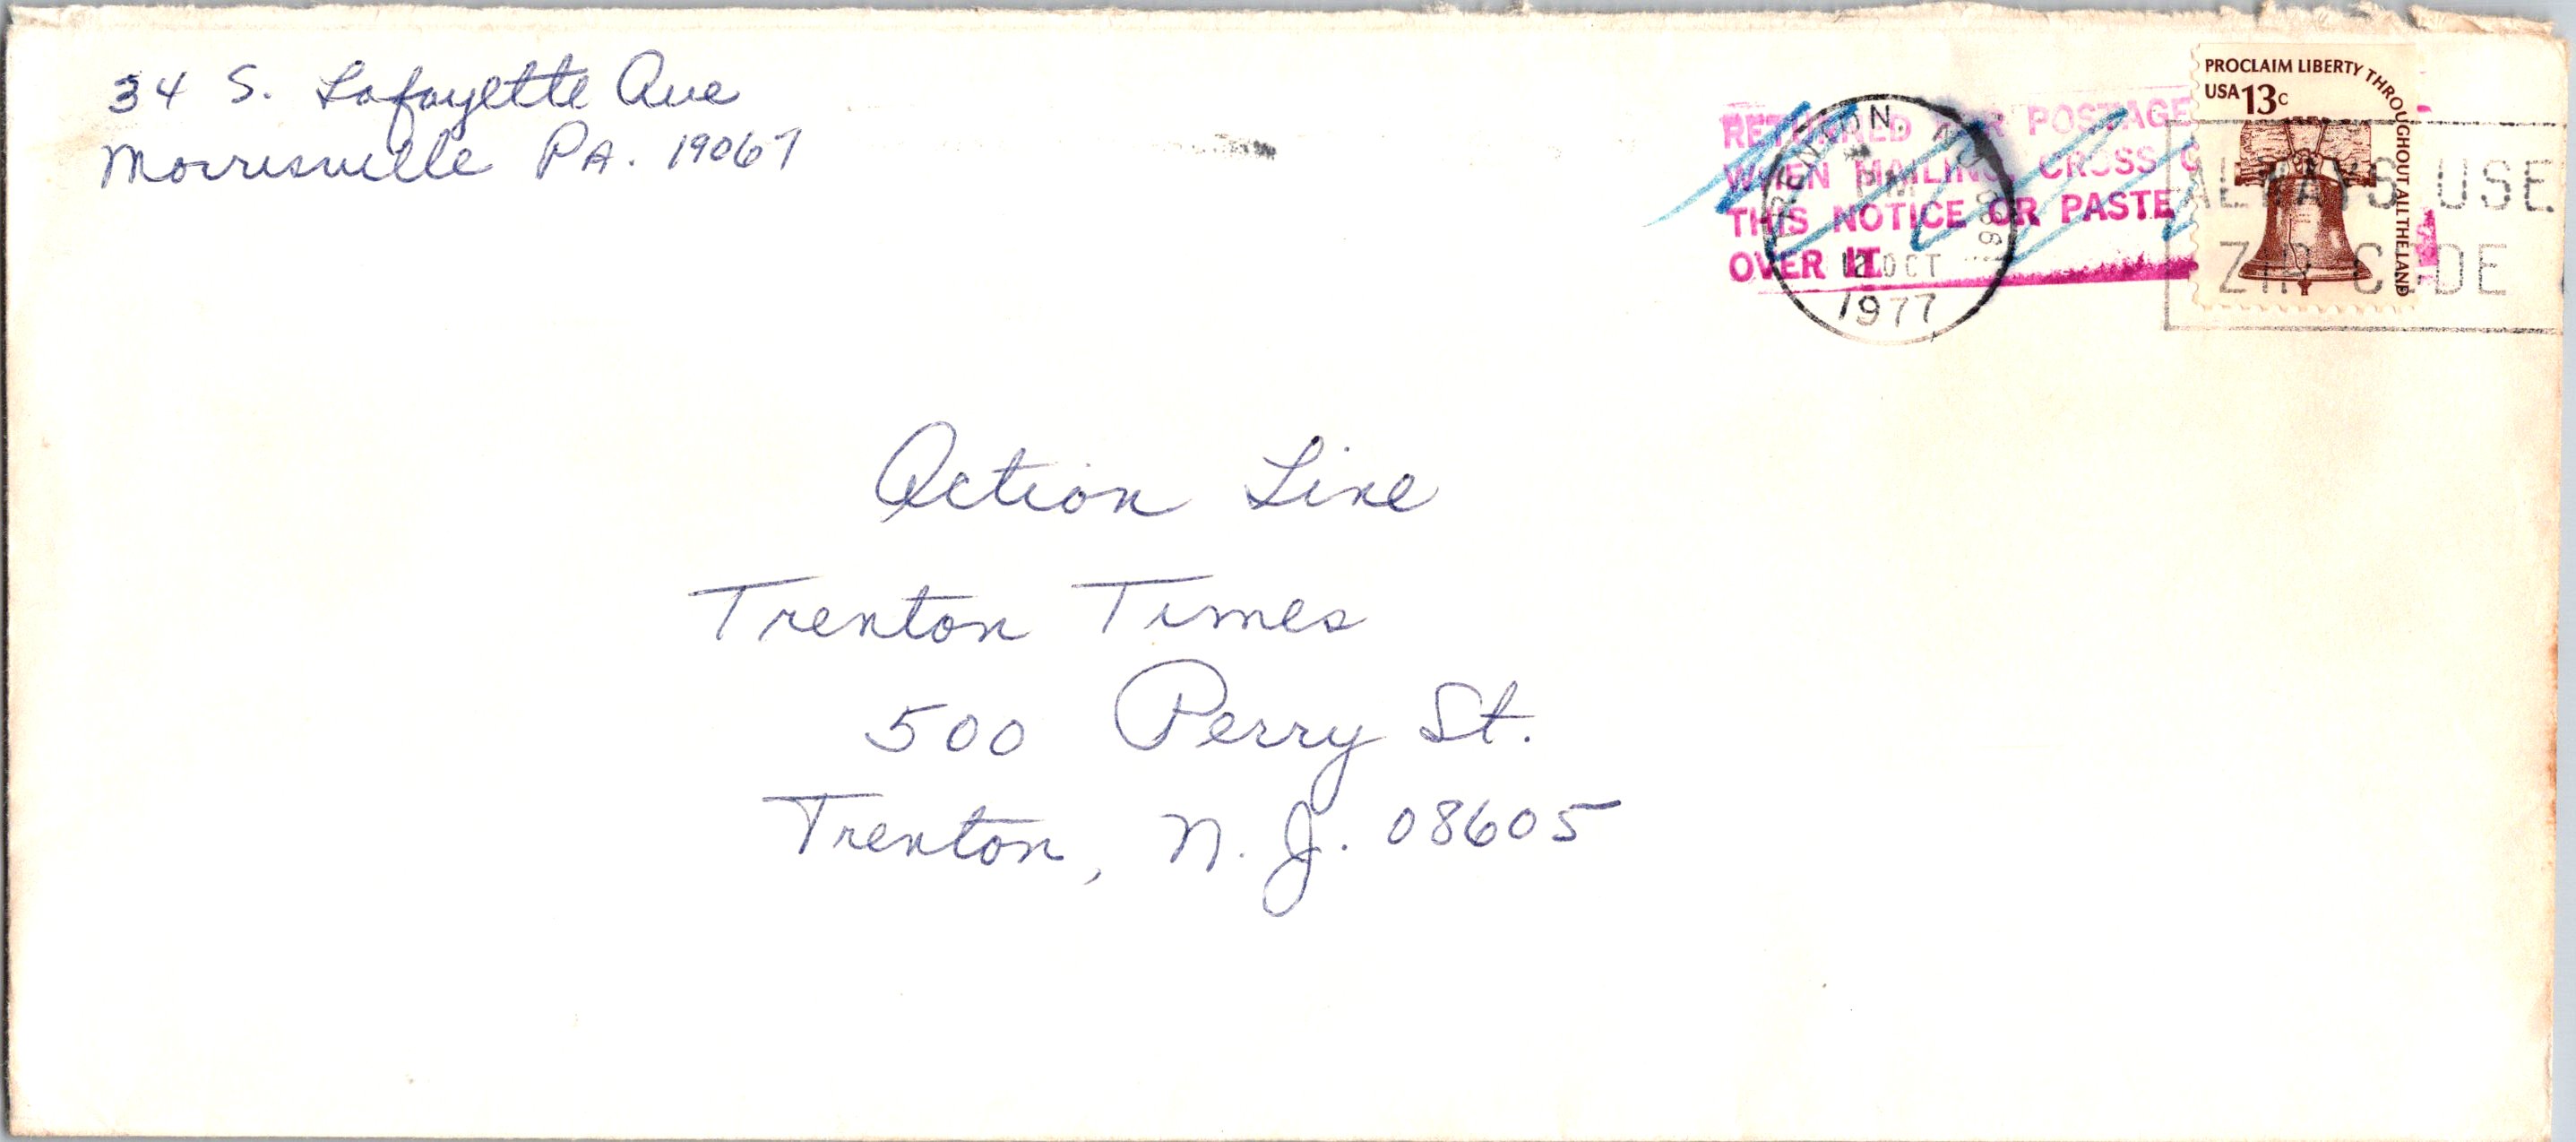 34 S. Lafayette Ave
Morrisville PA. 19067
RETURNED FOR POSTAGE
WHEN MAILING, CROSS O
THIS NOTICE OR PASTE
OVER IT.
TRENTON, NJ 086
PM
12 OCT
1977
PROCLAIM LIBERTY THROUGHOUT ALL THE LAND
USA 13c
ALWAYS USE
ZIP CODE
Action Line
Trenton Times
500 Perry St.
Trenton, N.J. 08605